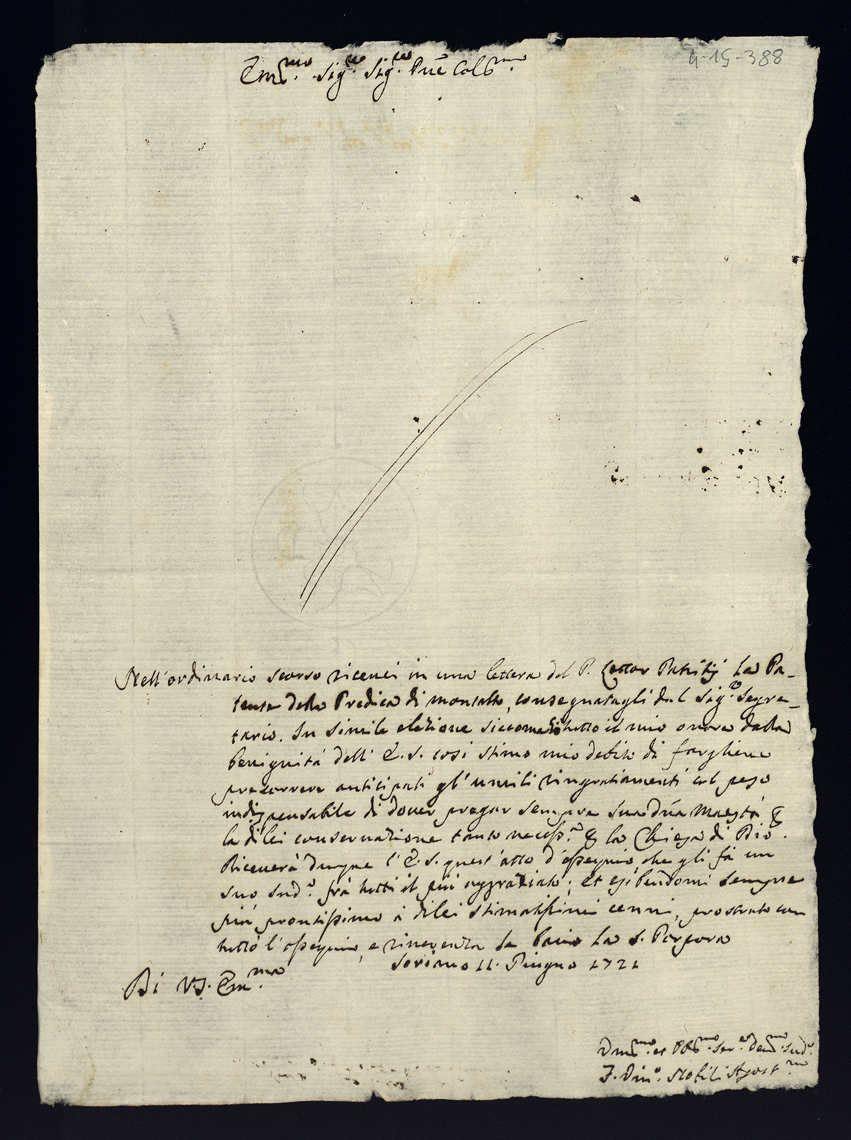 4-15-388
Em.mo Sig.re Sig.re Pñe Col.mo
Nell'ordinario scorso ricevei in una lettera del P. Lettor Patritij la Pa-
tente della Predica di montalto, consegnatagli dal Sig.re Segre-
tario. In simile elezione siccome tutto il mio onore dalla
benignità dell' E.S. così stimo mio debito di fargliene
precorrere anticipati gl'umili ringratiamenti col peso
indispensabile di dover pregar sempre sua Diña Maestà
la di lei conservazione tanto necess.a la Chiesa di Dio.
Riceverà dunque l'E.S. quest'atto d'ossequio che gli fà un
suo sud.o frà tutti il più aggraziato; et esibendomi sempre
più prontissimo à di lei stimatissimi cenni, prostrato con
tutto l'ossequio, e riverenza le bacio la S. Porpora
Soriano 11. Giugno 1721
Di V.S. Em.ma
Um.mo et Obb.mo Ser.e Dev.mo Sud.o
F. Nobili Agost.no